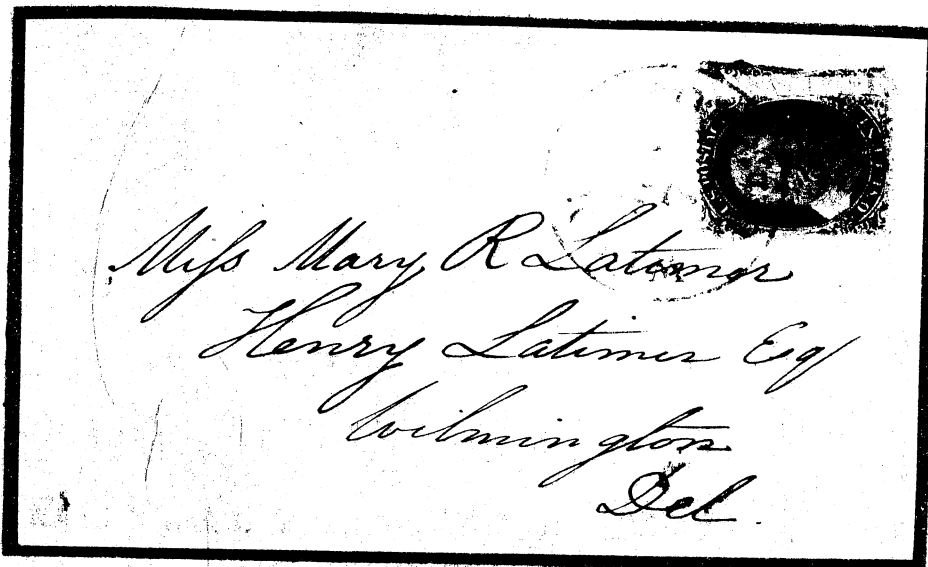 Miss Mary R Latimer
Henry Latimer Esq
Wilmington
Del.